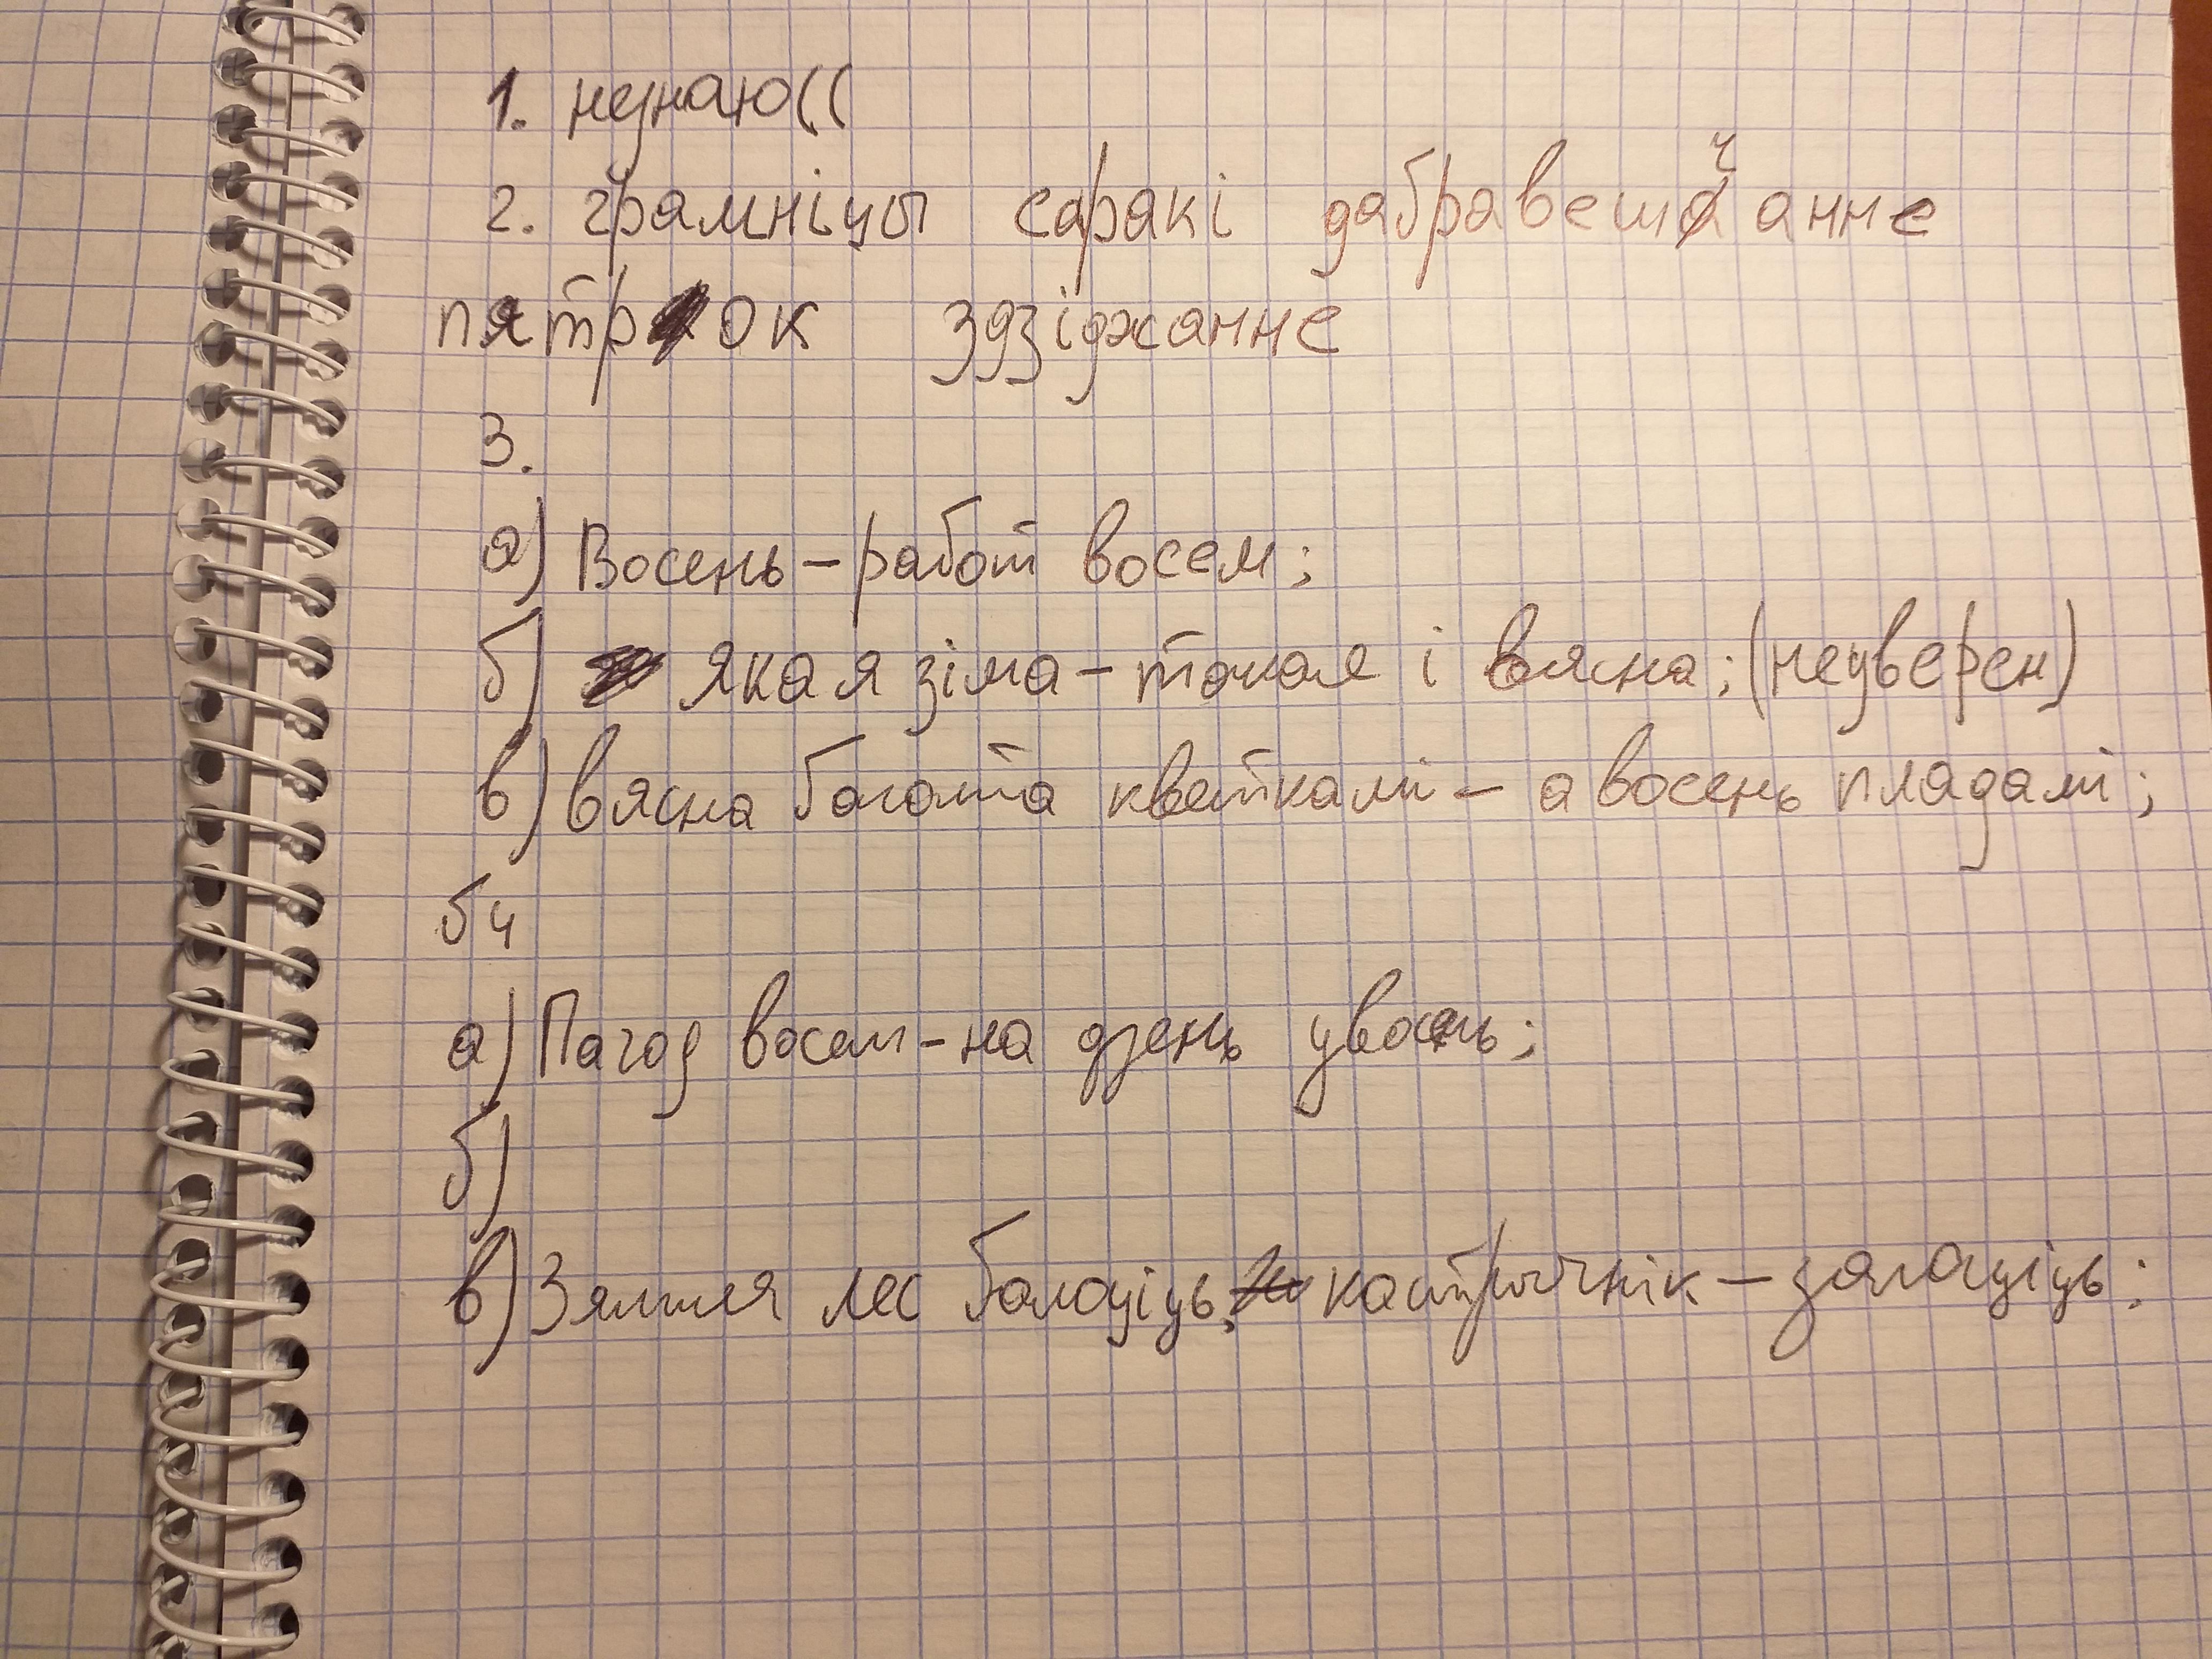 1. нунаю((
2. грамніцы саракі дабравешчанне
пятрок здзіджанне
3.
а) Восень – работ восем;
б) Якая зіма – такая і вясна; (неуверен)
в) Вясна богата кветкамі – а восень пладамі;
б4
а) Пагод восем – на дзень увосень;
б)
в) лес балоціць, кастрычнік – залаціць;